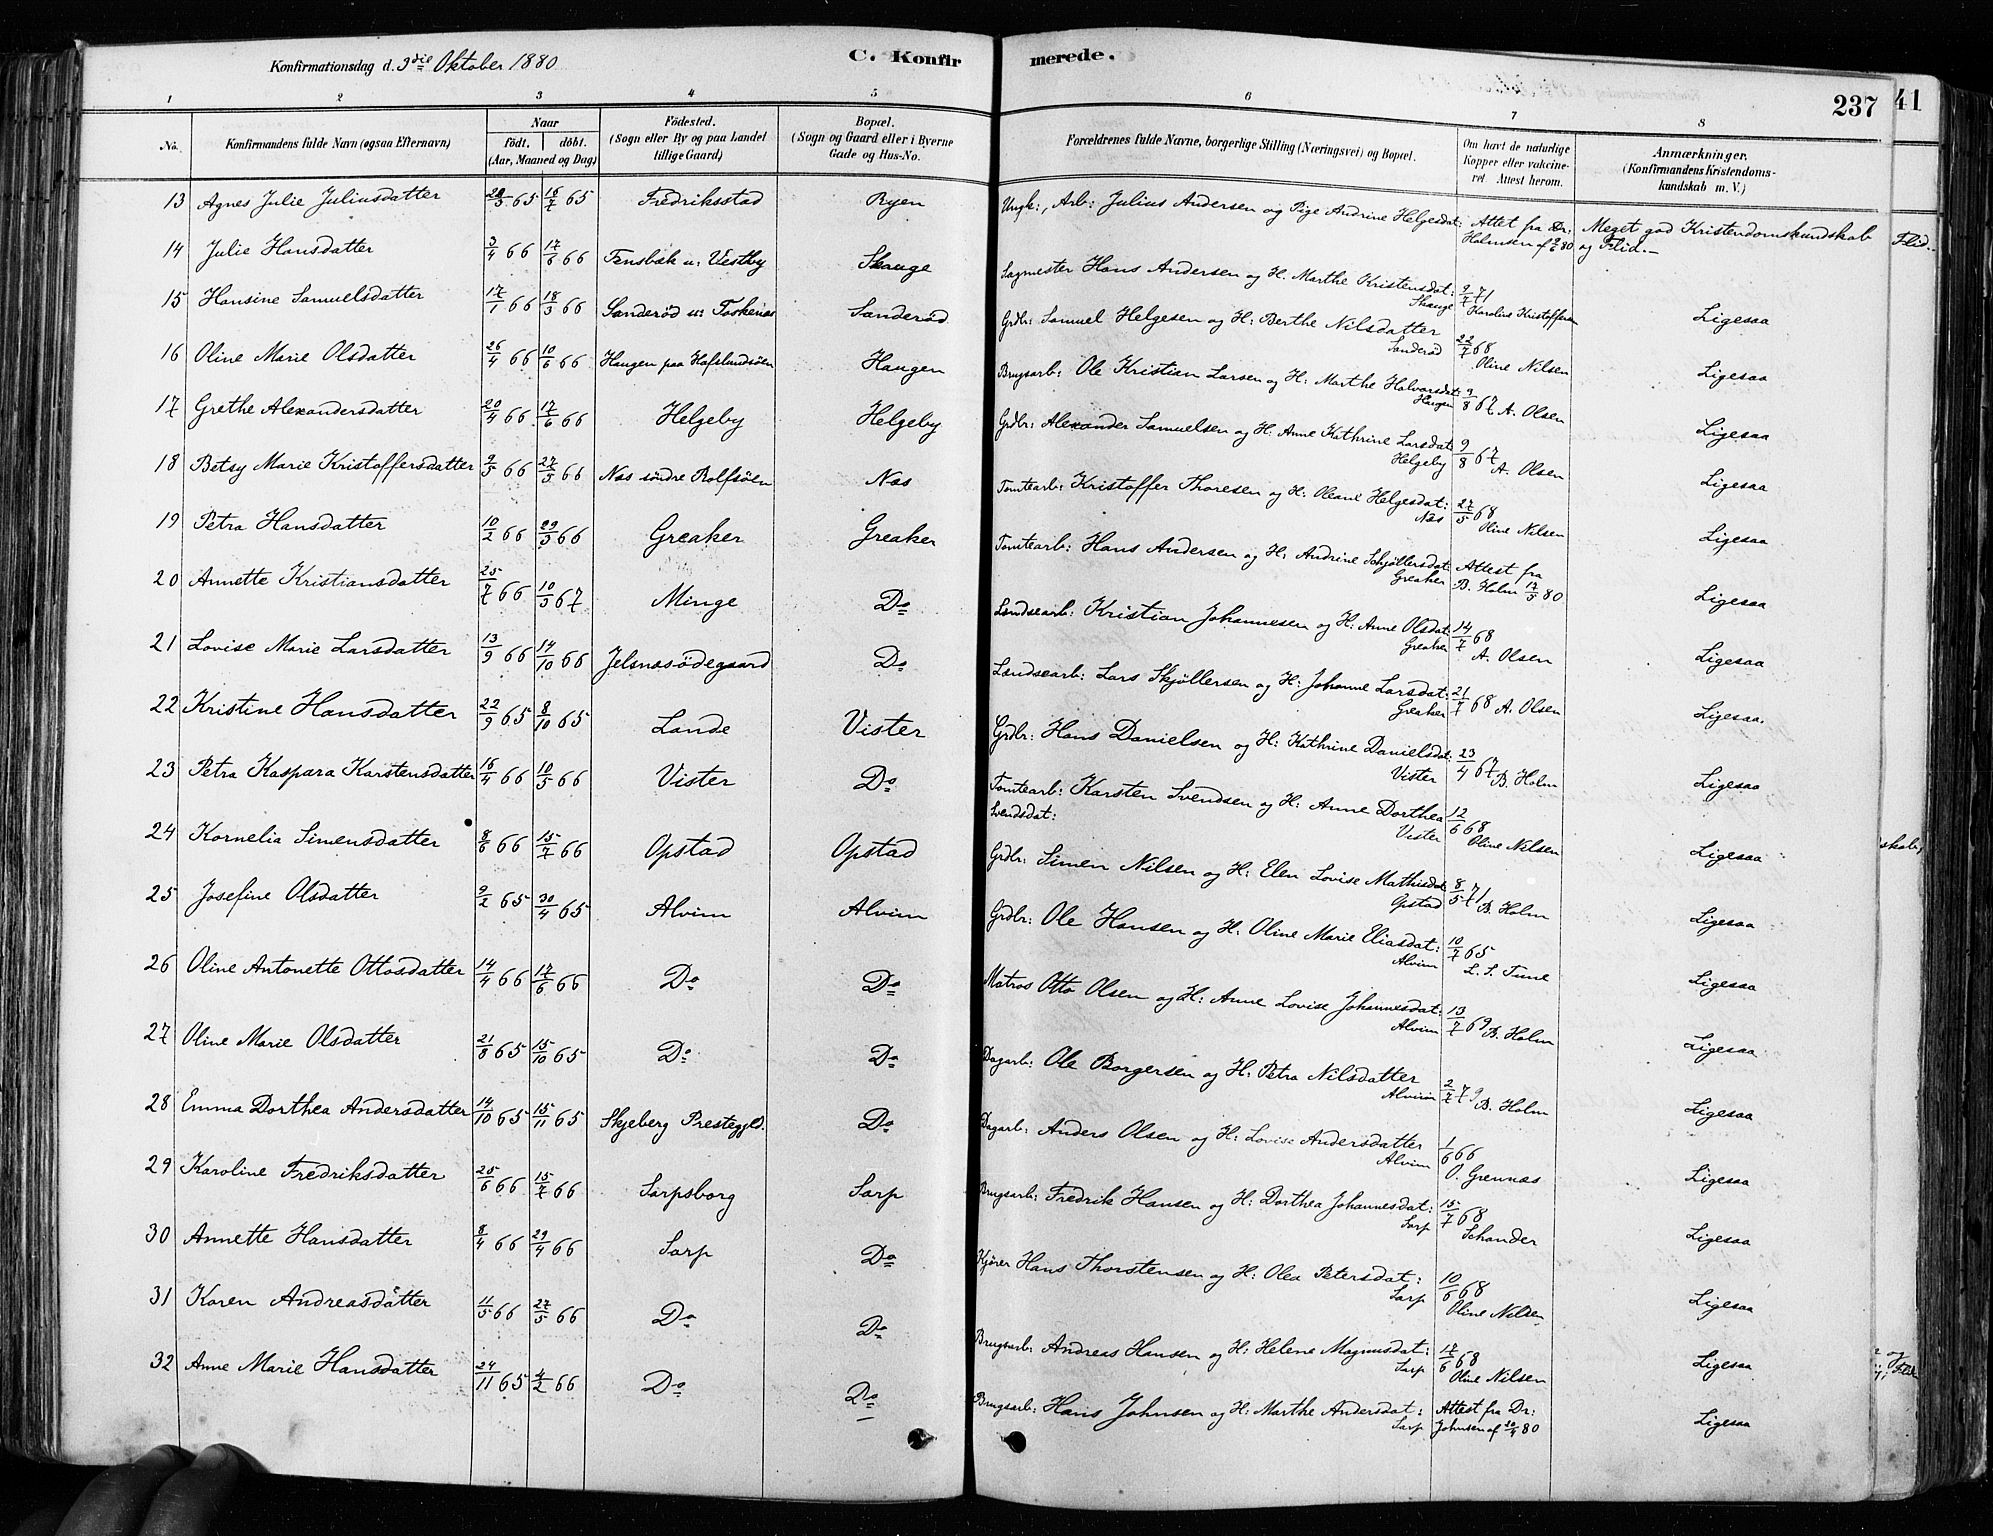 Konfirmationsdag d. 3die Oktober 1880
C. Konfirmerede.
237
41
1 2 3 4 5 6 7 8
No.
Konfirmandens fulde Navn (ogsaa Efternavn)
Naar
født. døbt.
(Aar, Maaned og Dag)
Fødested.
(Sogn eller By og paa Landet tillige Gaard)
Bopæl.
(Sogn og Gaard eller i Byerne Gade og Hus-No.
Forældrenes fulde Navne, borgerlige Stilling (Næringsvei) og Bopæl.
Om havt de naturlige Kopper eller vakcineret Attest herom.
Anmærkninger.
(Konfirmandens Kristendomskundskab m. V.)
13 Agnes Julie Juliusdatter 65 16/7 65 Fredriksstad Ryen Ungk:, Arb: Julius Andersen og Pige Andrine Helgesdat: Attet fra Dr: Holmsen af 80 Meget god Kristendomskundskab og Flid.
14 Julie Hansdatter 3/4 66 17/6 66 Fensbæk u: Vestby Skauge Sagmester Hans Andersen og H: Marthe Kristensdat: Skauge 9/7 71 Karolus Kristoffersen Ligesaa
15 Hansine Samuelsdatter 17/1 66 18/3 66 Sanderød u: Sanderød Grdbr: Samuel Helgesen og H: Berthe Nilsdatter Sanderød 22/7 68 Oline Nilsen Ligesaa
16 Oline Marie Olsdatter 26/4 66 10/6 66 Haugen paa Hafslundsöen Haugen Brugsarb: Ole Kristian Larsen og H: Marthe Halvorsdat: Haugen 9/8 67 A. Olsen Ligesaa
17 Grethe Alexandersdatter 20/4 66 17/6 66 Helgeby Helgeby Grdbr: Alexander Samuelsen og H: Anne Kathrine Larsdat: Helgeby 9/8 67 A. Olsen Ligesaa
18 Betsy Marie Kristoffersdatter 9/5 66 27/5 66 Næs söndre Rolfsöen Næs Tomtearb: Kristoffer Thoresen og H: Oleane Helgesdat: Næs 27/5 68 Oline Nilsen Ligesaa
19 Petra Hansdatter 10/2 66 29/3 66 Greaker Greaker Tomtearb: Hans Andersen og H: Andrine Schjöllersdat: Greaker Attest fra B. Holm 17/5 80 Ligesaa
20 Annette Kristiansdatter 25/7 66 10/3 67 Minge Do Landsearb: Kristian Johannesen og H: Anne Olsdat: Greaker 14/7 68 A. Olsen Ligesaa
21 Lovise Marie Larsdatter 13/9 66 14/10 66 Jelsnæsödegaard Do Landsearb: Lars Skjöllersen og H: Johanne Larsdat: Greaker 21/7 68 A. Olsen Ligesaa.
22 Kristine Hansdatter 22/9 65 8/10 65 Lande Vister Grdbr: Hans Danielsen og H: Kathrine Danielsdat: Vister 23/4 67 B. Holm Ligesaa
23 Petra Kaspara Karstensdatter 16/4 66 10/5 66 Vister Do Tomtearb: Karsten Svendsen og H: Anne Dorthea Svendsdat: Vister 12/6 68 Oline Nilsen Ligesaa
24 Kornelia Simensdatter 8/6 66 15/7 66 Opstad Opstad Grdbr: Simen Nilsen og H: Elen Lovise Mathisdat: Opstad 8/5 71 B. Holm Ligesaa
25 Josefine Olsdatter 9/2 65 30/4 65 Alvim Alvim Grdbr: Ole Hansen og H: Oline Marie Eliasdat: Alvim 10/7 65 L. S. Tune Ligesaa
26 Oline Antonette Ottosdatter 14/4 66 17/6 66 Do Do Matros Otto Olsen og H: Anne Lovise Johannesdat: Alvim 13/7 69 B. Holm Ligesaa
27 Oline Marie Olsdatter 21/8 65 15/10 65 Do Do Dagarb: Ole Borgersen og H: Petra Nilsdatter Alvim 2/7 79 B. Holm Ligesaa
28 Emma Dorthea Andersdatter 14/10 65 15/11 65 Skjeberg Prestegjeld. Do Dagarb: Anders Olsen og H: Lovise Andersdatter Alvim 1/6 66 O. Grennæs Ligesaa
29 Karoline Fredriksdatter 25/6 66 15/7 66 Sarpsborg Sarp Brugsarb: Fredrik Hansen og H: Dorthea Johannesdat: Sarp 15/7 68 Schander Ligesaa
30 Annette Hansdatter 8/4 66 29/4 66 Sarp Do Kjører Hans Thorstensen og H: Olea Petersdat: Sarp 10/6 68 Oline Nilsen Ligesaa
31 Karen Andreasdatter 11/5 66 27/5 66 Do Do Brugsarb: Andreas Hansen og H: Helene Magnusdat: Sarp 17/6 68 Oline Nilsen Ligesaa
32 Anne Marie Hansdatter 24/11 65 4/2 66 Do Do Brugsarb: Hans Johnsen og H: Marthe Andersdat: Sarp Attest fra Dr: Johnsen af 80 Ligesaa
Flid.
skab,